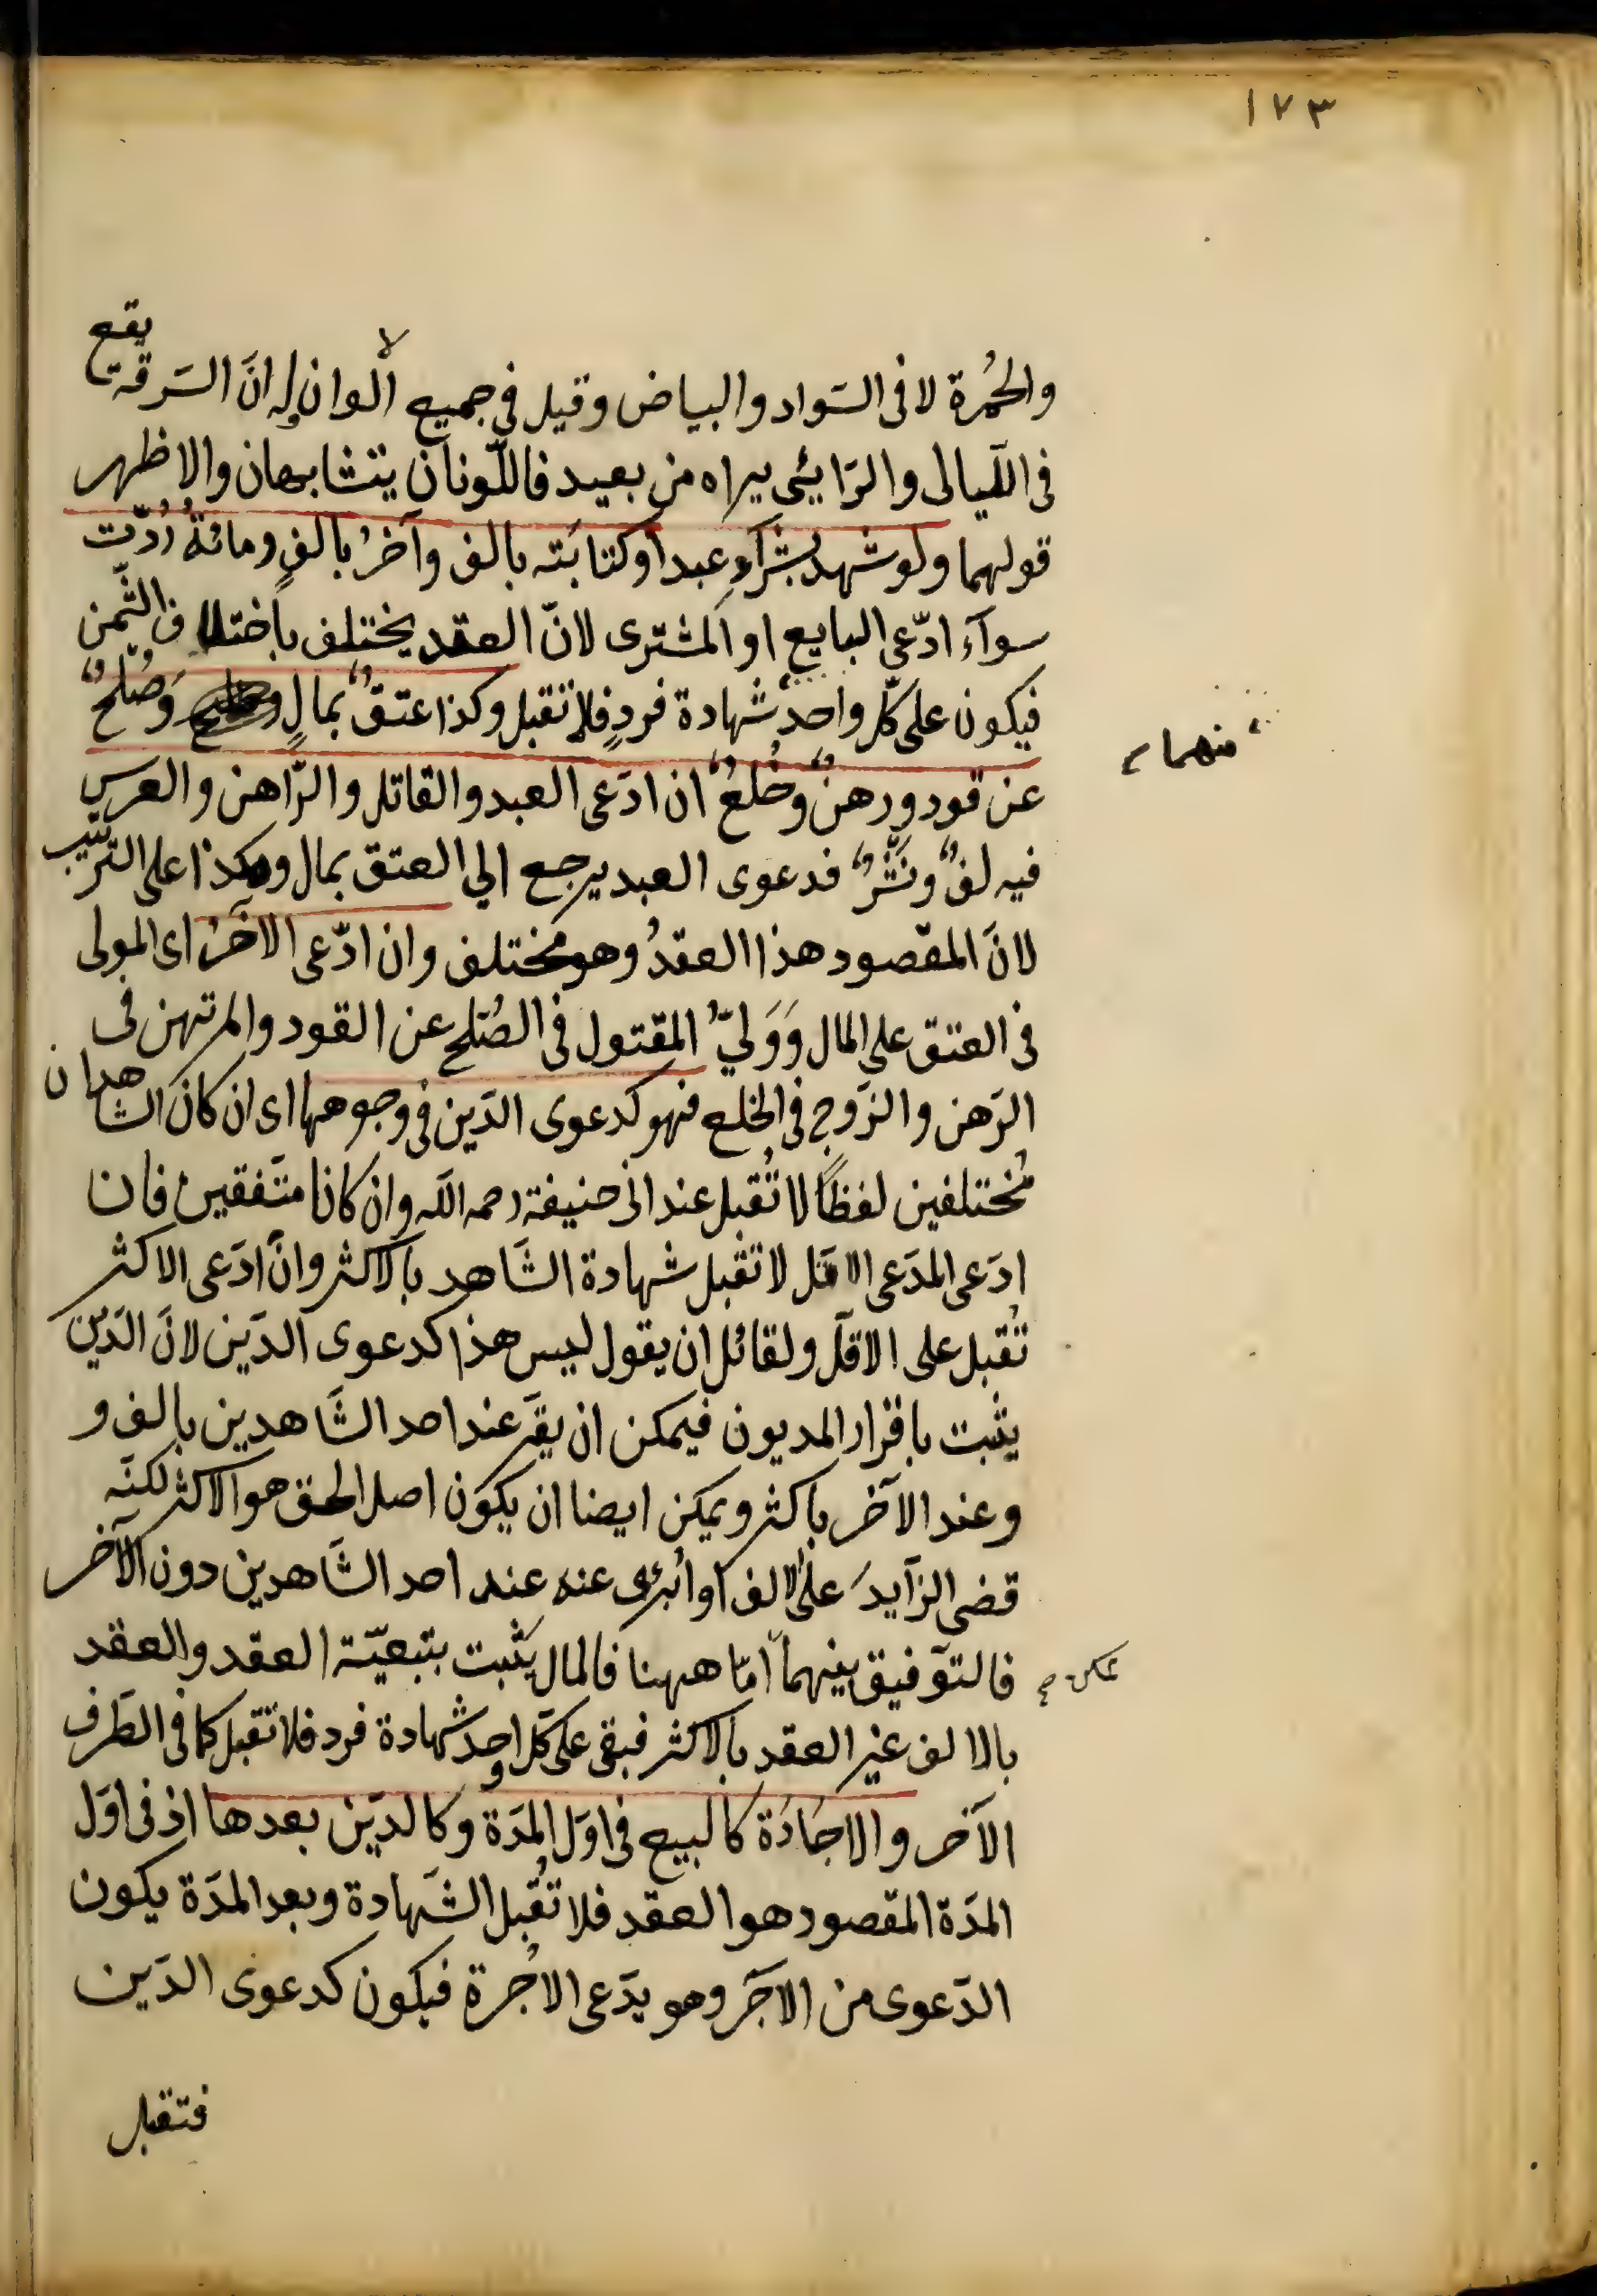 ١٧٣
والحُمرة لا فى السَواد والبياض وقيل فى جميع الالوان له انَ السَرقة يقع
فى اللّيالى والرَايئى يراه من بعيد فاللّونان يتشابهان والاظهر
قولهما ولو شهد بشرآءِ عبد او كتابَته بالف وآخرُ بالفٍ ومائةٌ رُدّت
سوآء ادّعى البايع او المشترى لانّ العقد يختلف باختلاف الثّمن
فيكون على كلّ واحد شهادة فردٍ فلا تقبل وكذا عتقٌ بمالٍ وَصُلحٌ
منهما
عن قود ورهنٌ وخُلعٌ ان ادّعى العبد والقاتل والرّاهن والعرس
فيه لفٌّ ونَشْرٌ فدعوى العبد يرجع الي العتق بمال وهكذا على التّرتيب
لانَ المقصود هذا العقدُ وهو مختلف وان ادّعى الآخرُ اى المولى
فى العتق على المال وَوَلىُّ المقتول فى الصُلح عن القود والمرتهن فى
الرَهن والزَوج فى الخلع فهو كدعوى الدَين فى وجوهها اى ان كانَ الشاهدان
مُختلفين لفظًا لا تُقبل عند ابى حنيفة رحمه اللّه وان كانا متّفقين فان
ادَعى المدَعى الاقل لا تقبل شهادة الشَاهد بالاكثر وان ادَعى الاكثر
تُقبل على الاقلّ ولقائل ان يقول ليس هذا كدعوى الدَين لانَ الدَين
يثبت باقرار المديون فيمكن ان يقرّ عند احد الشَاهدين بالف و
وعند الآخر باكثر ويمكن ايضا ان يكون اصل الحق هو الاكثر لكنّه
قضى الزآيدَ على الالف او اُبرئ عنه عند احد الشَاهدين دون الآخر
فالتوفيق بينهما امّا ههنا فالمال يثبت بتبعيّة العقد والعقد
ممكن صح
بالالف غير العقد بالاكثر فبقى على كلّ واحد شهادة فرد فلا تقبل كما فى الطَرف
الآخر والاجارَة كالبيع فى اوَل المدَة وكالدَين بعدها اذ فى اوَل
المدَة المقصود هو العقد فلا تُقبل الشَهادة وبعد المدَة يكون
الدَعوى من الآجَر وهو يدَعى الاُجرة فيكون كدعوى الدَين
فتقبل